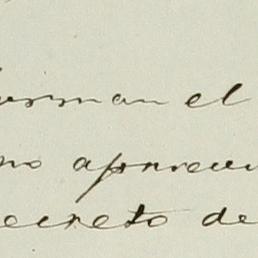 forman el
no aparecen
decreto de